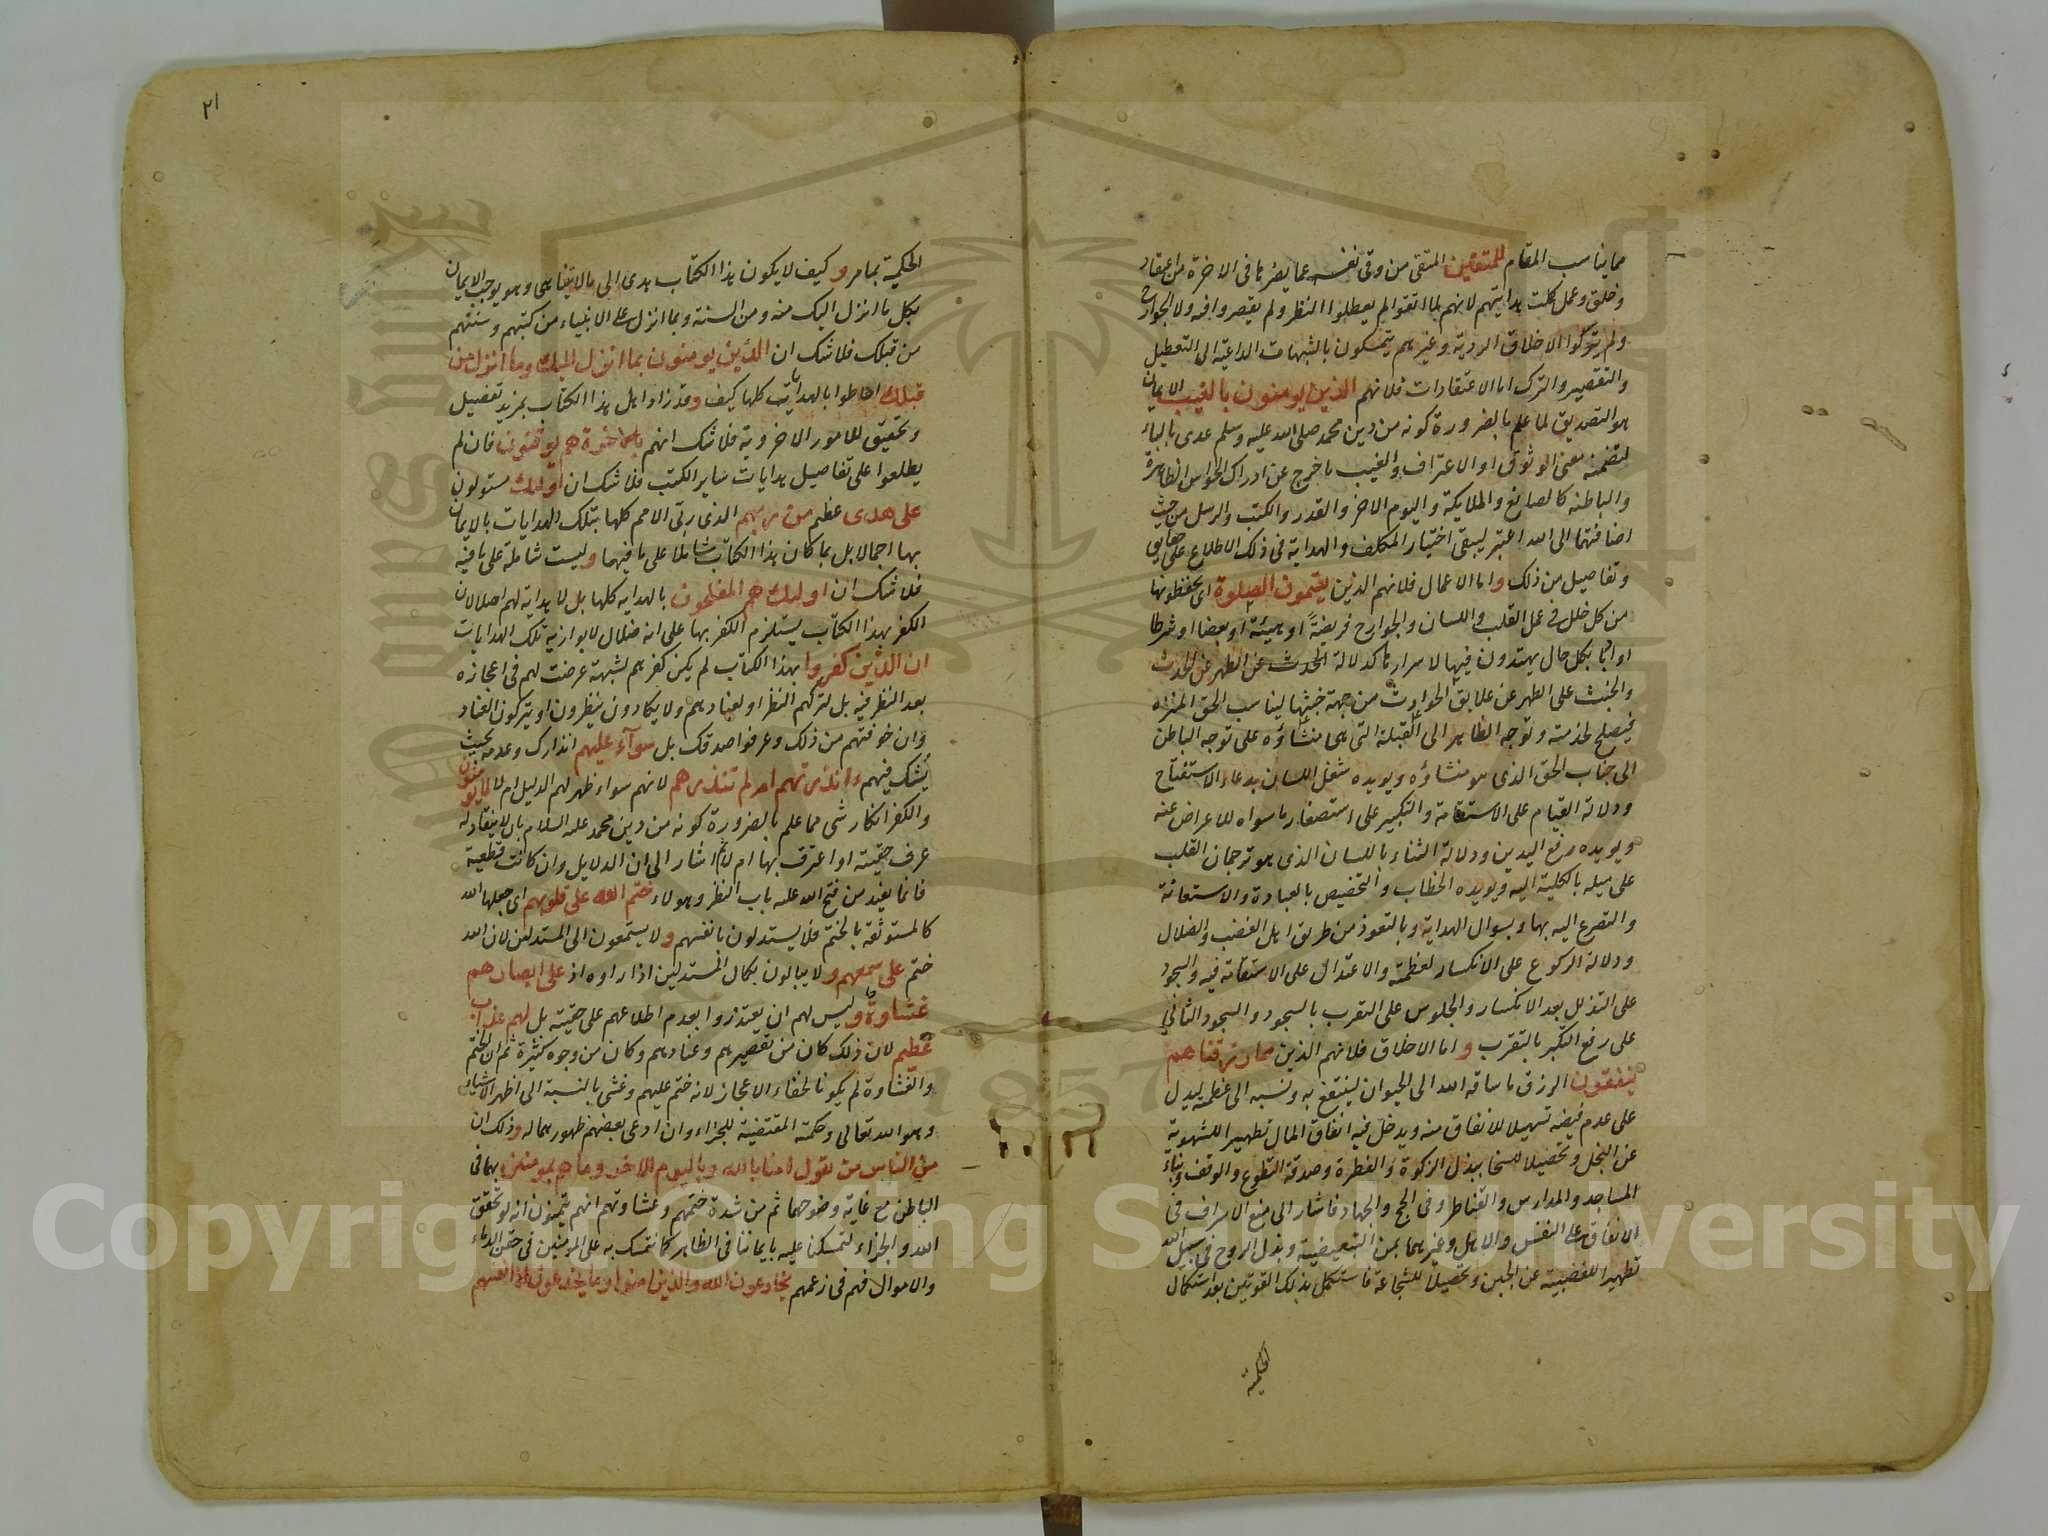 مما يناسب المقام للمتقين المتقى من وقى نفسه عما يضرها فى الاخرة من اعتقاد
وخلق وعمل كملت هدايتهم لانهم لما اتقوا لم يعطلوا النظر ولم يقصروا فيه ولا الجوارح
ولم يتركوا الاخلاق الردية وغيرهم يتمسكون بالشبهات الداعية الى التعطيل
والتقصير والترك اما الاعتقادات فلانهم الذين يومنون بالغيب الايمان
هو التصديق لما علم بالضرورة كونه من دين محمد صلى الله عليه وسلم عدى بالباء
لتضمنه معنى الوثوق او الاعتراف والغيب ما خرج عن ادراك الحواس الظاهرة
والباطنه كالصانع والملايكة واليوم الاخر والقدر والكتب والرسل من حيث
اضافتهما الى الله اعتبر ليبقى اختيار المكلف والهداية فى ذلك الاطلاع على حقايق
وتفاصيل من ذلك و اما الاعمال فلانهم الذين يقيمون الصلوة اى يحفظونها
من كل خلل فى عمل القلب واللسان والجوارح فريضة او هيئة او بعضا او شرطا
او ادبا بكل حال يهتدون فيها لاسرار تاكد لالة الحدث عن الطهر عن الحدث
والخبث على الطهر عن علايق الحوادث من جهة خبثها ليناسب الحق المنزه
فيصلح لخدمته وتوجه الظاهر الى القبلة التى هى منشاؤه على توجه الباطن
الى جناب الحق الذى هو منشاؤه ويويده شغل اللسان بدعاء الاستفتاح
ودلالة القيام على الاستقامة والتكبير على استصغار ما سواه للاعراض عنه
ويويده رفع اليدين ودلالة الثناء باللسان الذى هو ترجمان القلب
على ميله بالكلية اليه ويويده الخطاب والتخصيص بالعبادة والاستعانة
والتضرع اليه بها وبسوال الهداية وبالتعوذ من طريق اهل الغضب والضلال
ودلالة الركوع على الانكسار لعظمته والاعتدال على الاستقامة فيه والسجود
على التذلل بعد الانكسار والجلوس على التقرب بالسجود والسجود الثانى
على رفع التكبر بالتقرب و اما الاخلاق فلانهم الذين مما رزقناهم
ينفقون الرزق ما ساقه الله الى الحيوان لينتفع به ونسبه الى عظمته ليدل
على عدم قبضه تسهيلا للانفاق منه ويدخل فيه انفاق المال تطهيرا للشهوية
عن البخل وتحصيلا للسخا ببذل الزكوة والفطرة وصدقة التطوع والوقف وبناء
المساجد والمدارس والقناطر وفى الحج والجهاد فاشار الى منع الاسراف فى
الانفاق على النفس والاهل وغيرهما بمن التبعيضية وبذل الروح فى سبيل الله
تطهيرا للغضبية عن الجبن وتحصيلا للشجاعة فاستكمل بذلك القوتين بعد استكمال
الحكمية
٢١
الحكمية بما مر و كيف لا يكون هذا الكتاب هدى الى ما لا يتناهى وهو يوجب الايمان
بكل ما انزل اليك منه ومن السنة وبما انزل على الانبياء من كتبهم وسنتهم
من قبلك فلا شك ان الذين يومنون بما انزل اليك وما انزل من
قبلك احاطوا بالهدايات كلها كيف و قد زاد اهل هذا الكتاب بمزيد تفصيل
وتحقيق للامور الاخروية فلا شك انهم بالاخرة هم يوقنون فان لم
يطلعوا على تفاصيل هدايات ساير الكتب فلا شك ان اوليك مستولون
على هدى عظيم من ربهم الذى ربى الامم كلها بتلك الهدايات بالايمان
بها اجمالا بل بما كان هذا الكتاب شاملا على ما فيها و ليست شاملة على ما فيه
فلا شك ان اوليك هم المفلحون بالهدايه كلها بل لا هداية لهم اصلا لان
الكفر بهذا الكتاب يستلزم الكفر بها على انه ضلال لا يوازيه تلك الهدايات
ان الذين كفروا بهذا الكتاب لم يكن كفرهم لشبهة عرضت لهم فى اعجازه
بعد النظر فيه بل لتركهم النظر او لعنادهم ولا يكادون ينظرون او يتركون العناد
وان خوفتهم من ذلك وعرفوا صدقك بل سوآء عليهم انذارك وعدمه بحيث
يشك فيهم ءانذرتهم ام لم تنذرهم لانهم سواء ظهر لهم الدليل ام لا لا يومنون
والكفر انكار شى مما علم بالضرورة كونه من دين محمد عليه السلام بان لا ينقاد له
عرف حقيته او اعترف بها ام لا ثم اشار الى ان الدلايل وان كانت قطعية
فانما يفيد من فتح الله عليه باب النظر وهولاء ختم الله على قلوبهم اى جعلها الله
كالمستوثقة بالختم فلا يستدلون بانفسهم و لا يستمعون الى المستدلين لان الله
ختم على سمعهم و لا يبالون بكمال المستدلين اذا راوه اذ على ابصارهم
غشاوة و ليس لهم ان يعتذروا بعدم اطلاعهم على حقيته بل لهم عذاب
عظيم لان ذلك كان من تقصيرهم وعنادهم وكان من وجوه كثيرة ثم ان الختم
والغشاوة لم يكونا لخفاء الاعجاز لانه ختم عليهم وغشى بالنسبة الى اظهر الاشياء
وهو الله تعالى وحكمته المقتضية للجزاء وان ادعى بعضهم ظهورهما له و ذلك ان
من الناس من يقول امنا بالله وباليوم الاخر وما هم بمومنين بهما فى
الباطن مع غاية وضوحهما ثم من شدة ختمهم وغشاوتهم انهم يتمنون انه لو تحقق
الله والجزاء لتمسكنا عليه بايماننا فى الظاهر كما نتمسك به على المومنين فى حقن الدماء
والاموال فهم فى زعمهم يخادعون الله والذين امنوا وما يخدعون الا انفسهم
Copyright © King Saud University
1957